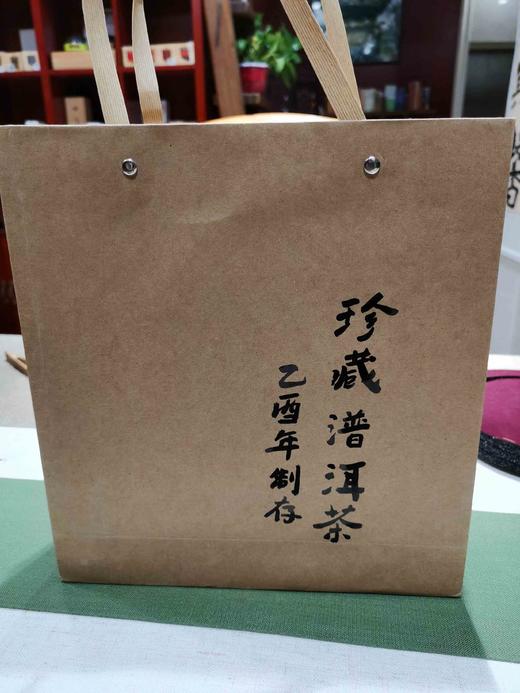 珍藏普洱茶
乙酉年制存